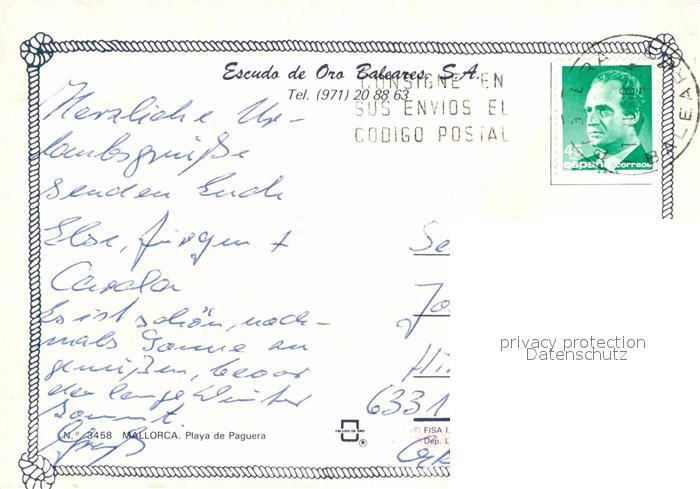 Escudo de Oro Baleares, S.A.
Tel. (971) 20 88 63
CONSIGNE EN
SUS ENVIOS EL
CODIGO POSTAL
España correos
BALEAR
Herzliche Ur-
laubsgrüße
senden Euch
Else, Jürgen +
Carola
Es ist schön, noch-
mals Sonne zu
genießen, bevor
der lange Winter
kommt
Gruß
Se
Jo
Hi
6331
N.º 3458 MALLORCA. Playa de Paguera
ESCUDO DE ORO
®
© FISA I.
Dep. L
privacy protection
Datenschutz